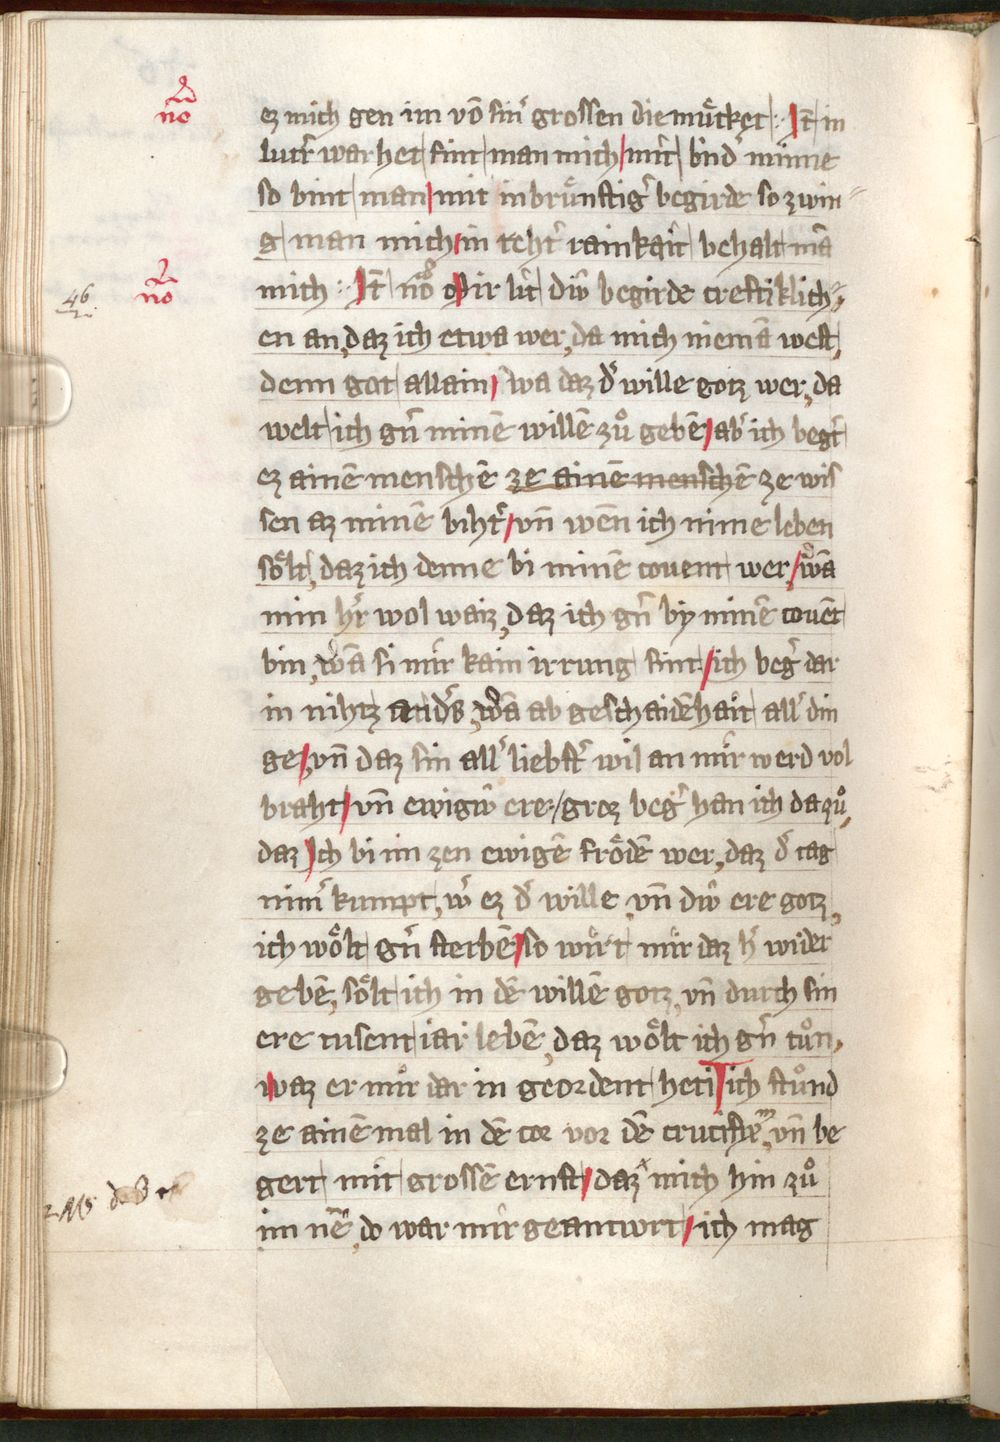 no
ez mich gen im vō sinr̄ grossen die mu᷵tket Jt̄ in
lutr̄ warhet sint man mich mit bīndr̄ minne
so bint man mit inbrünstigr̄ begirde so zwin
g man mich in rehtr̄ rainkait behalt mā
mich Jt̄ nō
no
Mir lit diw begirde creftiklich
46
en an daz ich etwa wer da mich niemā west
denn got allain wa daz dr̄ wille gotz wer da
welt ich gn̄ minē willē zů gebē abr̄ ich begr̄
ez ainē menschē ze ainē menschē ze wis
sen az minē bihtr̄ vn̄ wen ich nime leben
sölt daz ich denne bi minē couent wer wā
min hr̄ wol waiz daz ich gn̄ by minē couēt
bin wā si mir kain irrung sint ich begr̄ dar
in nihtz andrs wā ab geschaidēhait allr̄ din
ge vn̄ daz sin allr̄ liebstr̄ wil an mir werd vol
braht vn̄ ewigiw ere groz begr̄ han ich dazů
daz Ich bi im zen ewigē fröidē wer daz dr̄ tag
nimr̄ kumpt wr̄ ez dr̄ wille vn̄ diw ere gotz
ich wölt gn̄ sterbē so würt mir daz hr̄ wider
gebē sölt ich in dē willē gotz vn̄ durch sin
ere tusent iar lebē daz wölt ich gn̄ tůn
waz er mir dar in geordent heti ich stůnd
ze ainē mal in dē cor vor dē crucifix vn̄ be
gert mit grossē ernst daz mich hin zů
im nē do war mir geantwrt ich mag